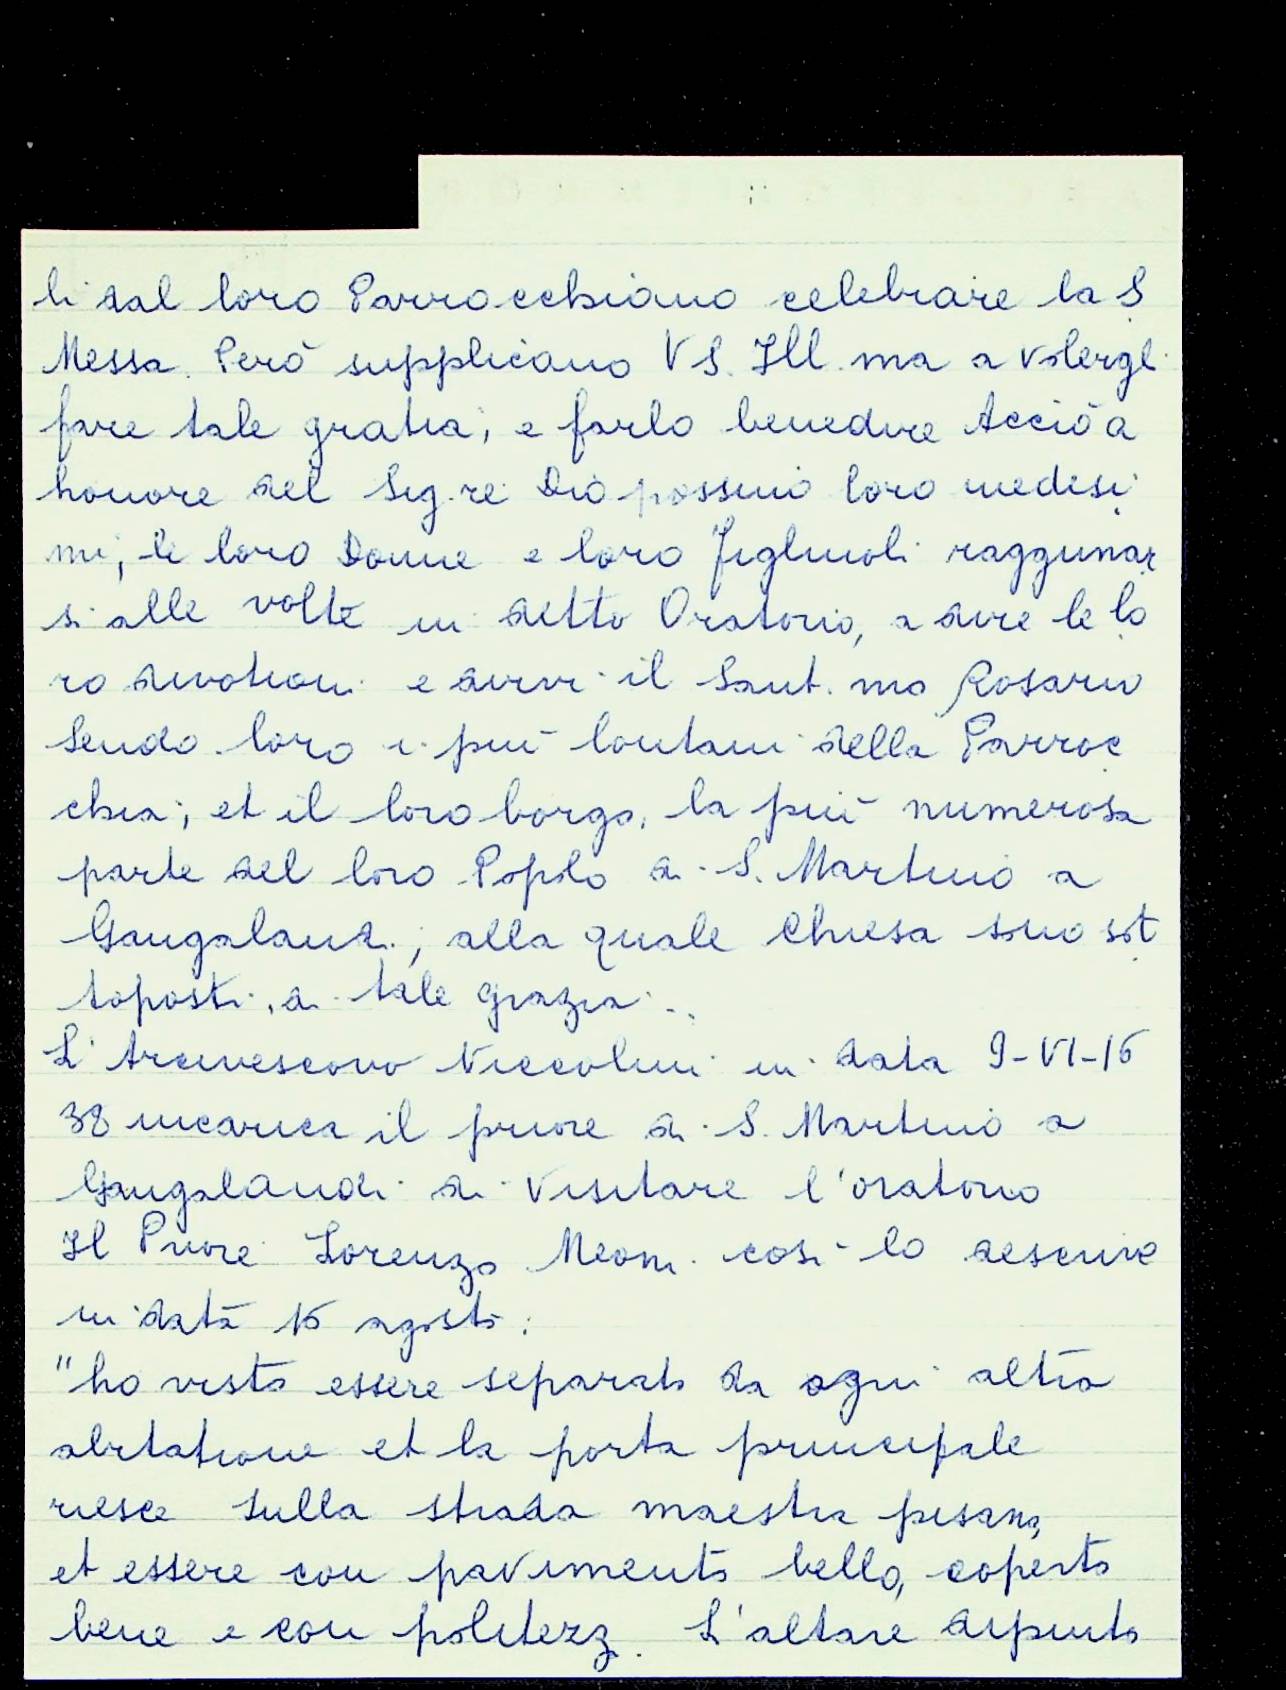 li dal loro Parrocchiano celebrare la S.
Messa. Però supplicano VS. Ill.ma a volergli
fare tale gratia, e farlo benedire Acciò a
honore del Sig.re Dio possino loro medesi
mi, le loro Donne e loro Figliuoli raggunar
si alle volte in detto Oratorio, a dire le lo
ro devotioni e dirvi il Sant.mo Rosario
Sendo loro i più lontani della Parroc
chia; et il loro borgo, la più numerosa
parte del loro Popolo di S. Martino a
Gangalandi, alla quale Chiesa sono sot
toposti, di tale grazia..
L'Arcivescovo Niccolini in data 9-VI-16
38 incarica il priore di S. Martino a
Gangalandi di visitare l'oratorio
Il Priore Lorenzo Meoni così lo descrive
in data 16 agosto:
"ho visto essere separato da ogni altra
abitatione et la porta principale
riesce sulla strada maestra pisana,
et essere con pavimento bello, coperto
bene e con politezz. L'altare dipinto